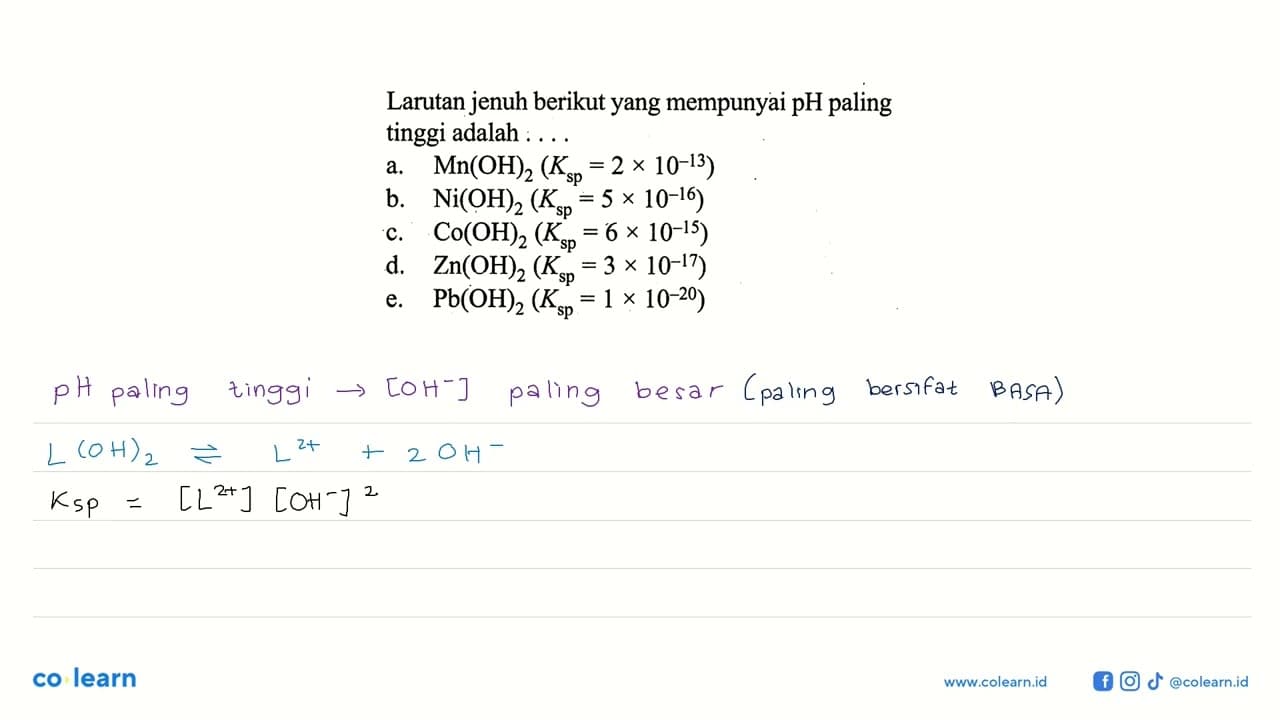 Larutan jenuh berikut yang mempunyai pH paling
tinggi adalah . . . .
a. Mn(OH)₂ (Kₛₚ = 2 × 10⁻¹³)
b. Ni(OH)₂ (Kₛₚ = 5 × 10⁻¹⁶)
c. Co(OH)₂ (Kₛₚ = 6 × 10⁻¹⁵)
d. Zn(OH)₂ (Kₛₚ = 3 × 10⁻¹⁷)
e. Pb(OH)₂ (Kₛₚ = 1 × 10⁻²⁰)
pH paling tinggi → [OH⁻] paling besar (paling bersifat BASA)
L(OH)₂ ⇌ L²⁺ + 2OH⁻
Ksp = [L²⁺] [OH⁻]²
co learn
www.colearn.id
@colearn.id